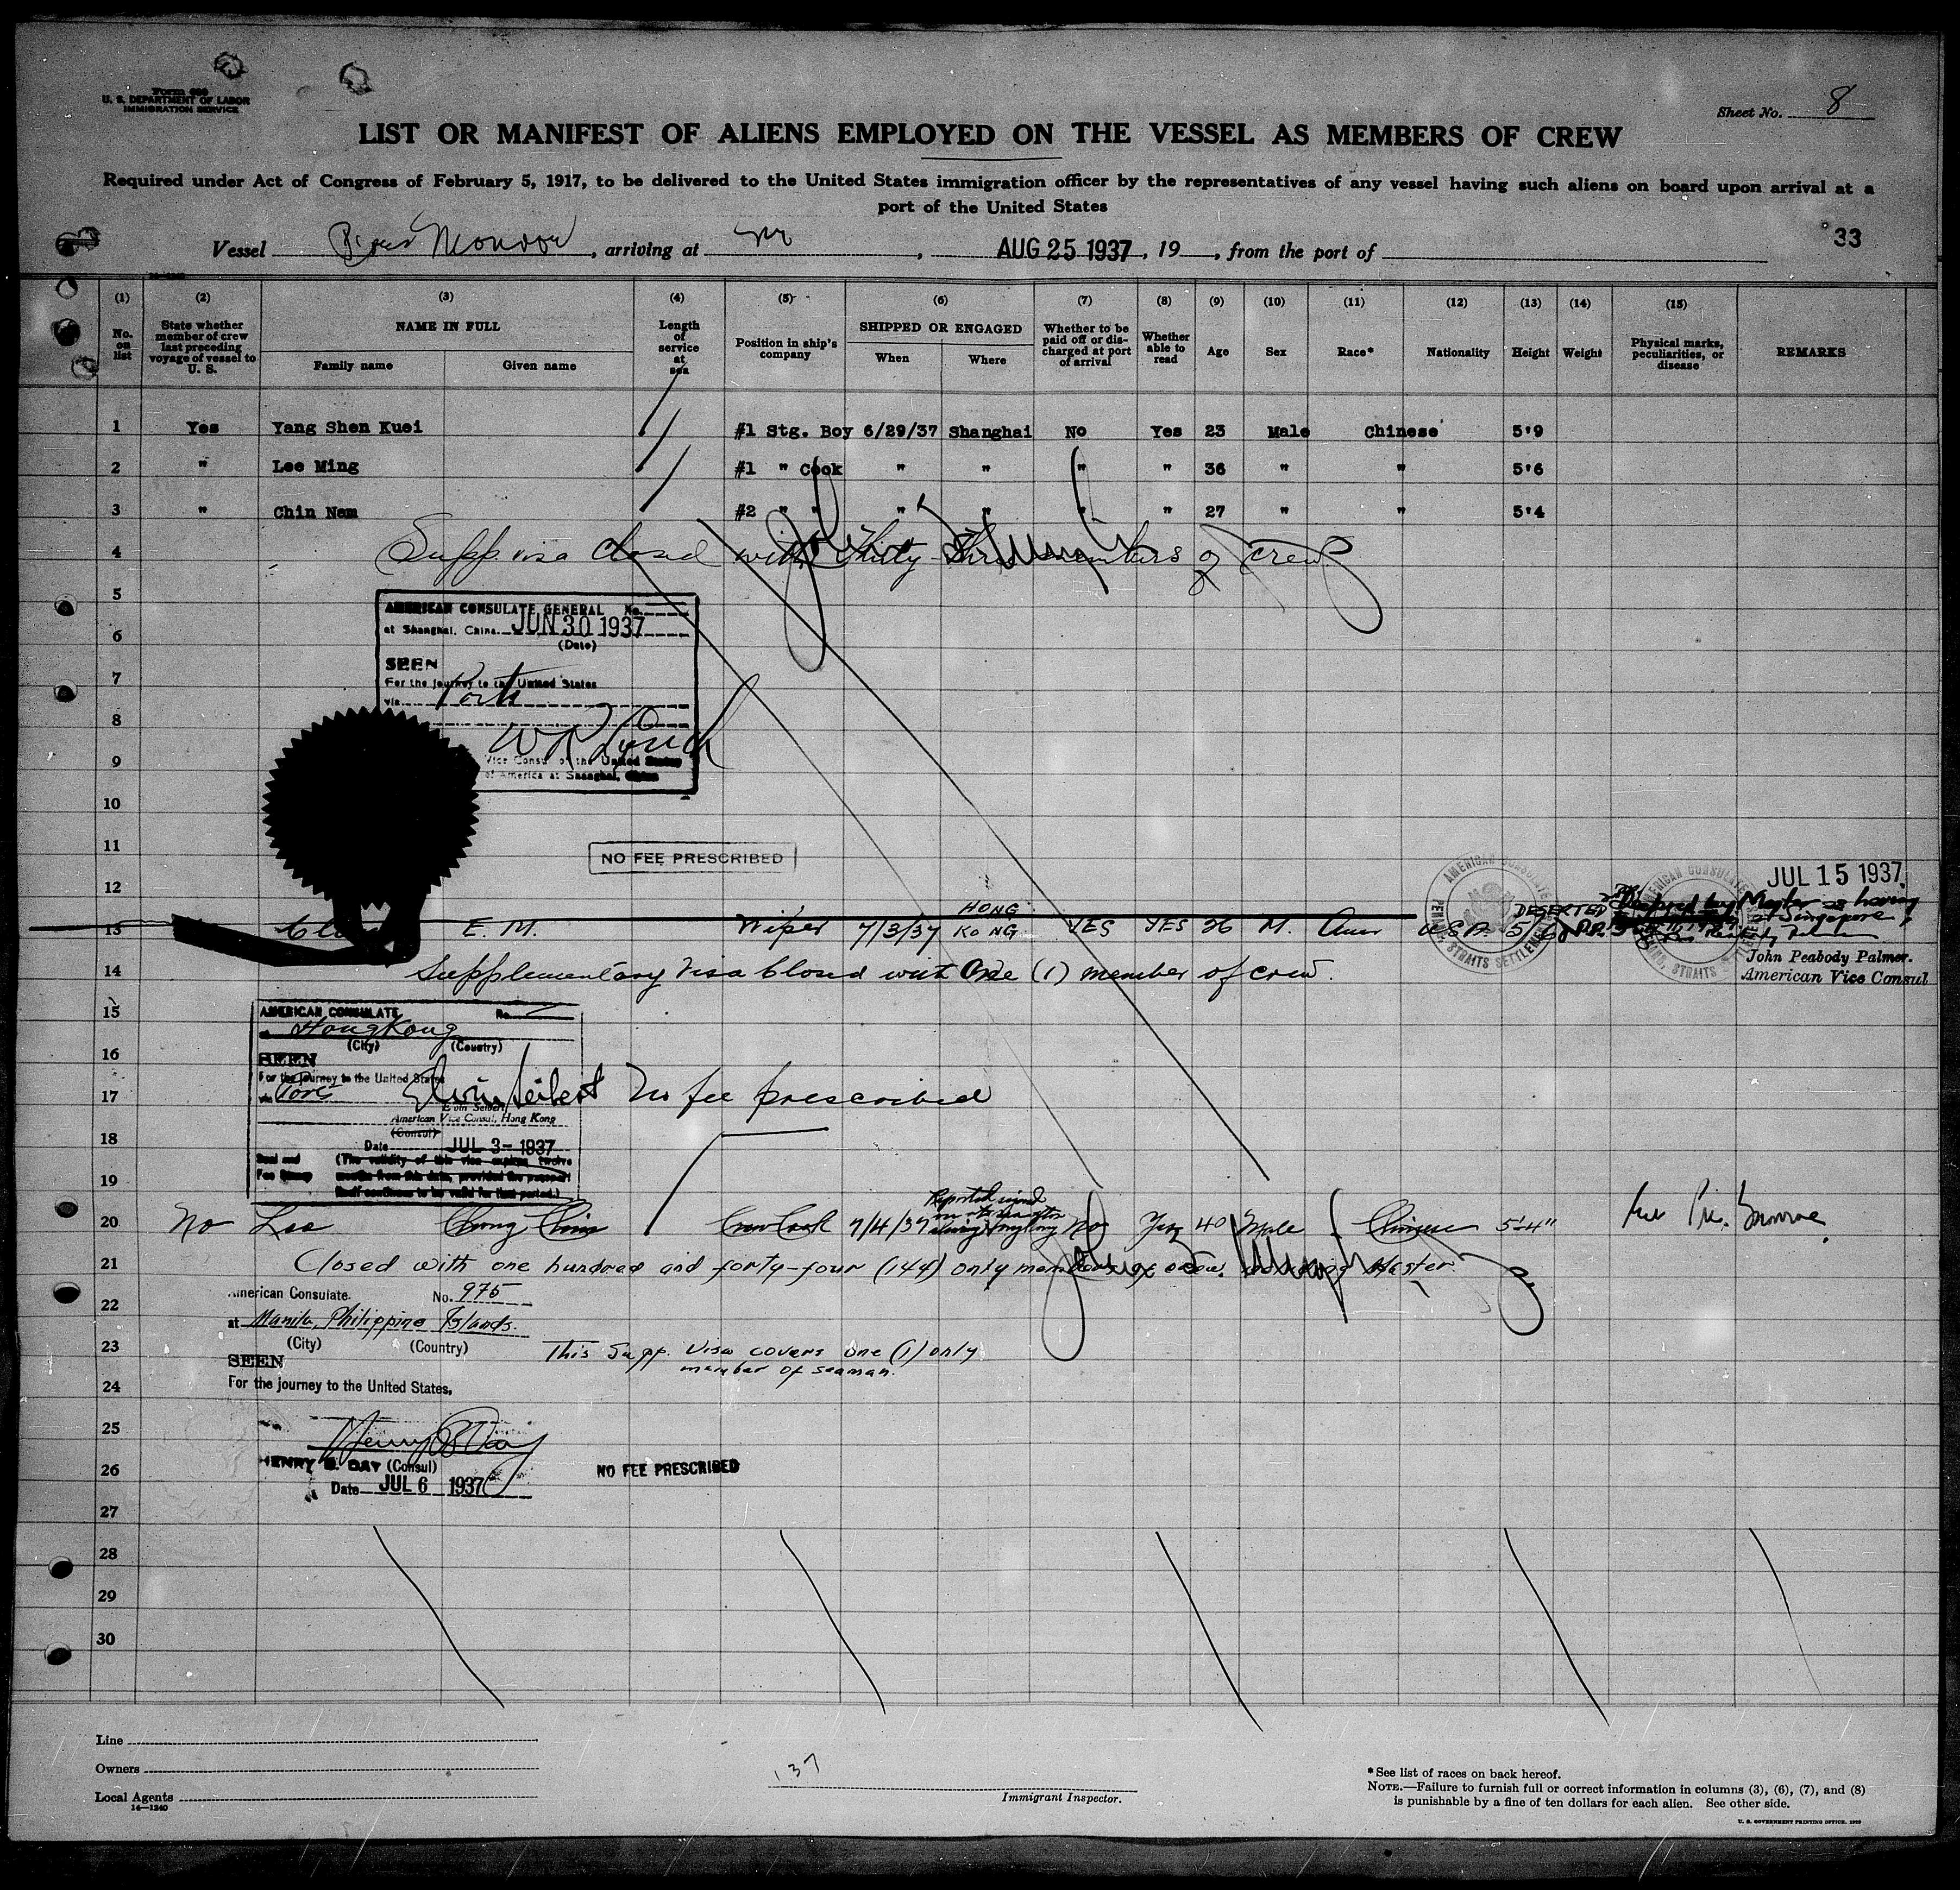 Form 680
U. S. DEPARTMENT OF LABOR
IMMIGRATION SERVICE
Sheet No. 8
LIST OR MANIFEST OF ALIENS EMPLOYED ON THE VESSEL AS MEMBERS OF CREW
Required under Act of Congress of February 5, 1917, to be delivered to the United States immigration officer by the representatives of any vessel having such aliens on board upon arrival at a
port of the United States
33
Vessel , arriving at , AUG 25 1937, 19 , from the port of
(1) (2) (3) (4) (5) (6) (7) (8) (9) (10) (11) (12) (13) (14) (15)
No. on list
State whether member of crew last preceding voyage of vessel to U. S.
NAME IN FULL
Family name Given name
Length of service at sea
Position in ship's company
SHIPPED OR ENGAGED
When Where
Whether to be paid off or discharged at port of arrival
Whether able to read
Age Sex Race* Nationality Height Weight
Physical marks, peculiarities, or disease
REMARKS
1 Yes Yang Shen Kuei #1 Stg. Boy 6/29/37 Shanghai No Yes 23 Male Chinese 5'9
2 " Lee Ming #1 " Cook " " " " 36 " " 5'6
3 " Chin Nam #2 " " " " " " 27 " " 5'4
4 Supp. visa closed with Thirty-Three members of crew
5
AMERICAN CONSULATE GENERAL No.
at Shanghai, China. JUN 30 1937
(Date)
6
SEEN
7
For the journey to the United States
via Ports
8
9
Vice Consul of the United States
of America at Shanghai, China
10
11
NO FEE PRESCRIBED
JUL 15 1937
12
13 E. M. Wiper 7/3/37 HONG KONG YES YES 26 M. Amer U.S.A. 5'6 DESERTED
by Master as having
at Singapore
14 Supplementary visa closed with One (1) member of crew.
AMERICAN CONSULATE PENANG, STRAITS SETTLEMENTS
John Peabody Palmer.
American Vice Consul
15
AMERICAN CONSULATE No.
at Hong Kong
(City) (Country)
16
SEEN
For the journey to the United States
via Ports
17 No fee prescribed
Elvin Seibert
Elvin Seibert
American Vice Consul, Hong Kong
(Consul)
18
Date JUL 3- 1937
Seal and Fee Stamp
(The validity of this visa expires twelve
months from this date, provided the passport
itself continues to be valid for that period.)
19
20 No Lee Chong Crew Cook 7/4/37 No Yes 40 Male Chinese 5'4"
21 Closed with one hundred and forty-four (144) only members of crew, including Master.
American Consulate. No. 975
22
at Manila, Philippine Islands.
(City) (Country)
23 This Supp. Visa covers one (1) only
member of seaman.
SEEN
24
For the journey to the United States,
25
26
HENRY B. DAY (Consul)
Date JUL 6 1937
NO FEE PRESCRIBED
27
28
29
30
Line
Owners
Local Agents
14—1240
137
Immigrant Inspector.
* See list of races on back hereof.
NOTE.—Failure to furnish full or correct information in columns (3), (6), (7), and (8)
is punishable by a fine of ten dollars for each alien. See other side.
U. S. GOVERNMENT PRINTING OFFICE. 1929